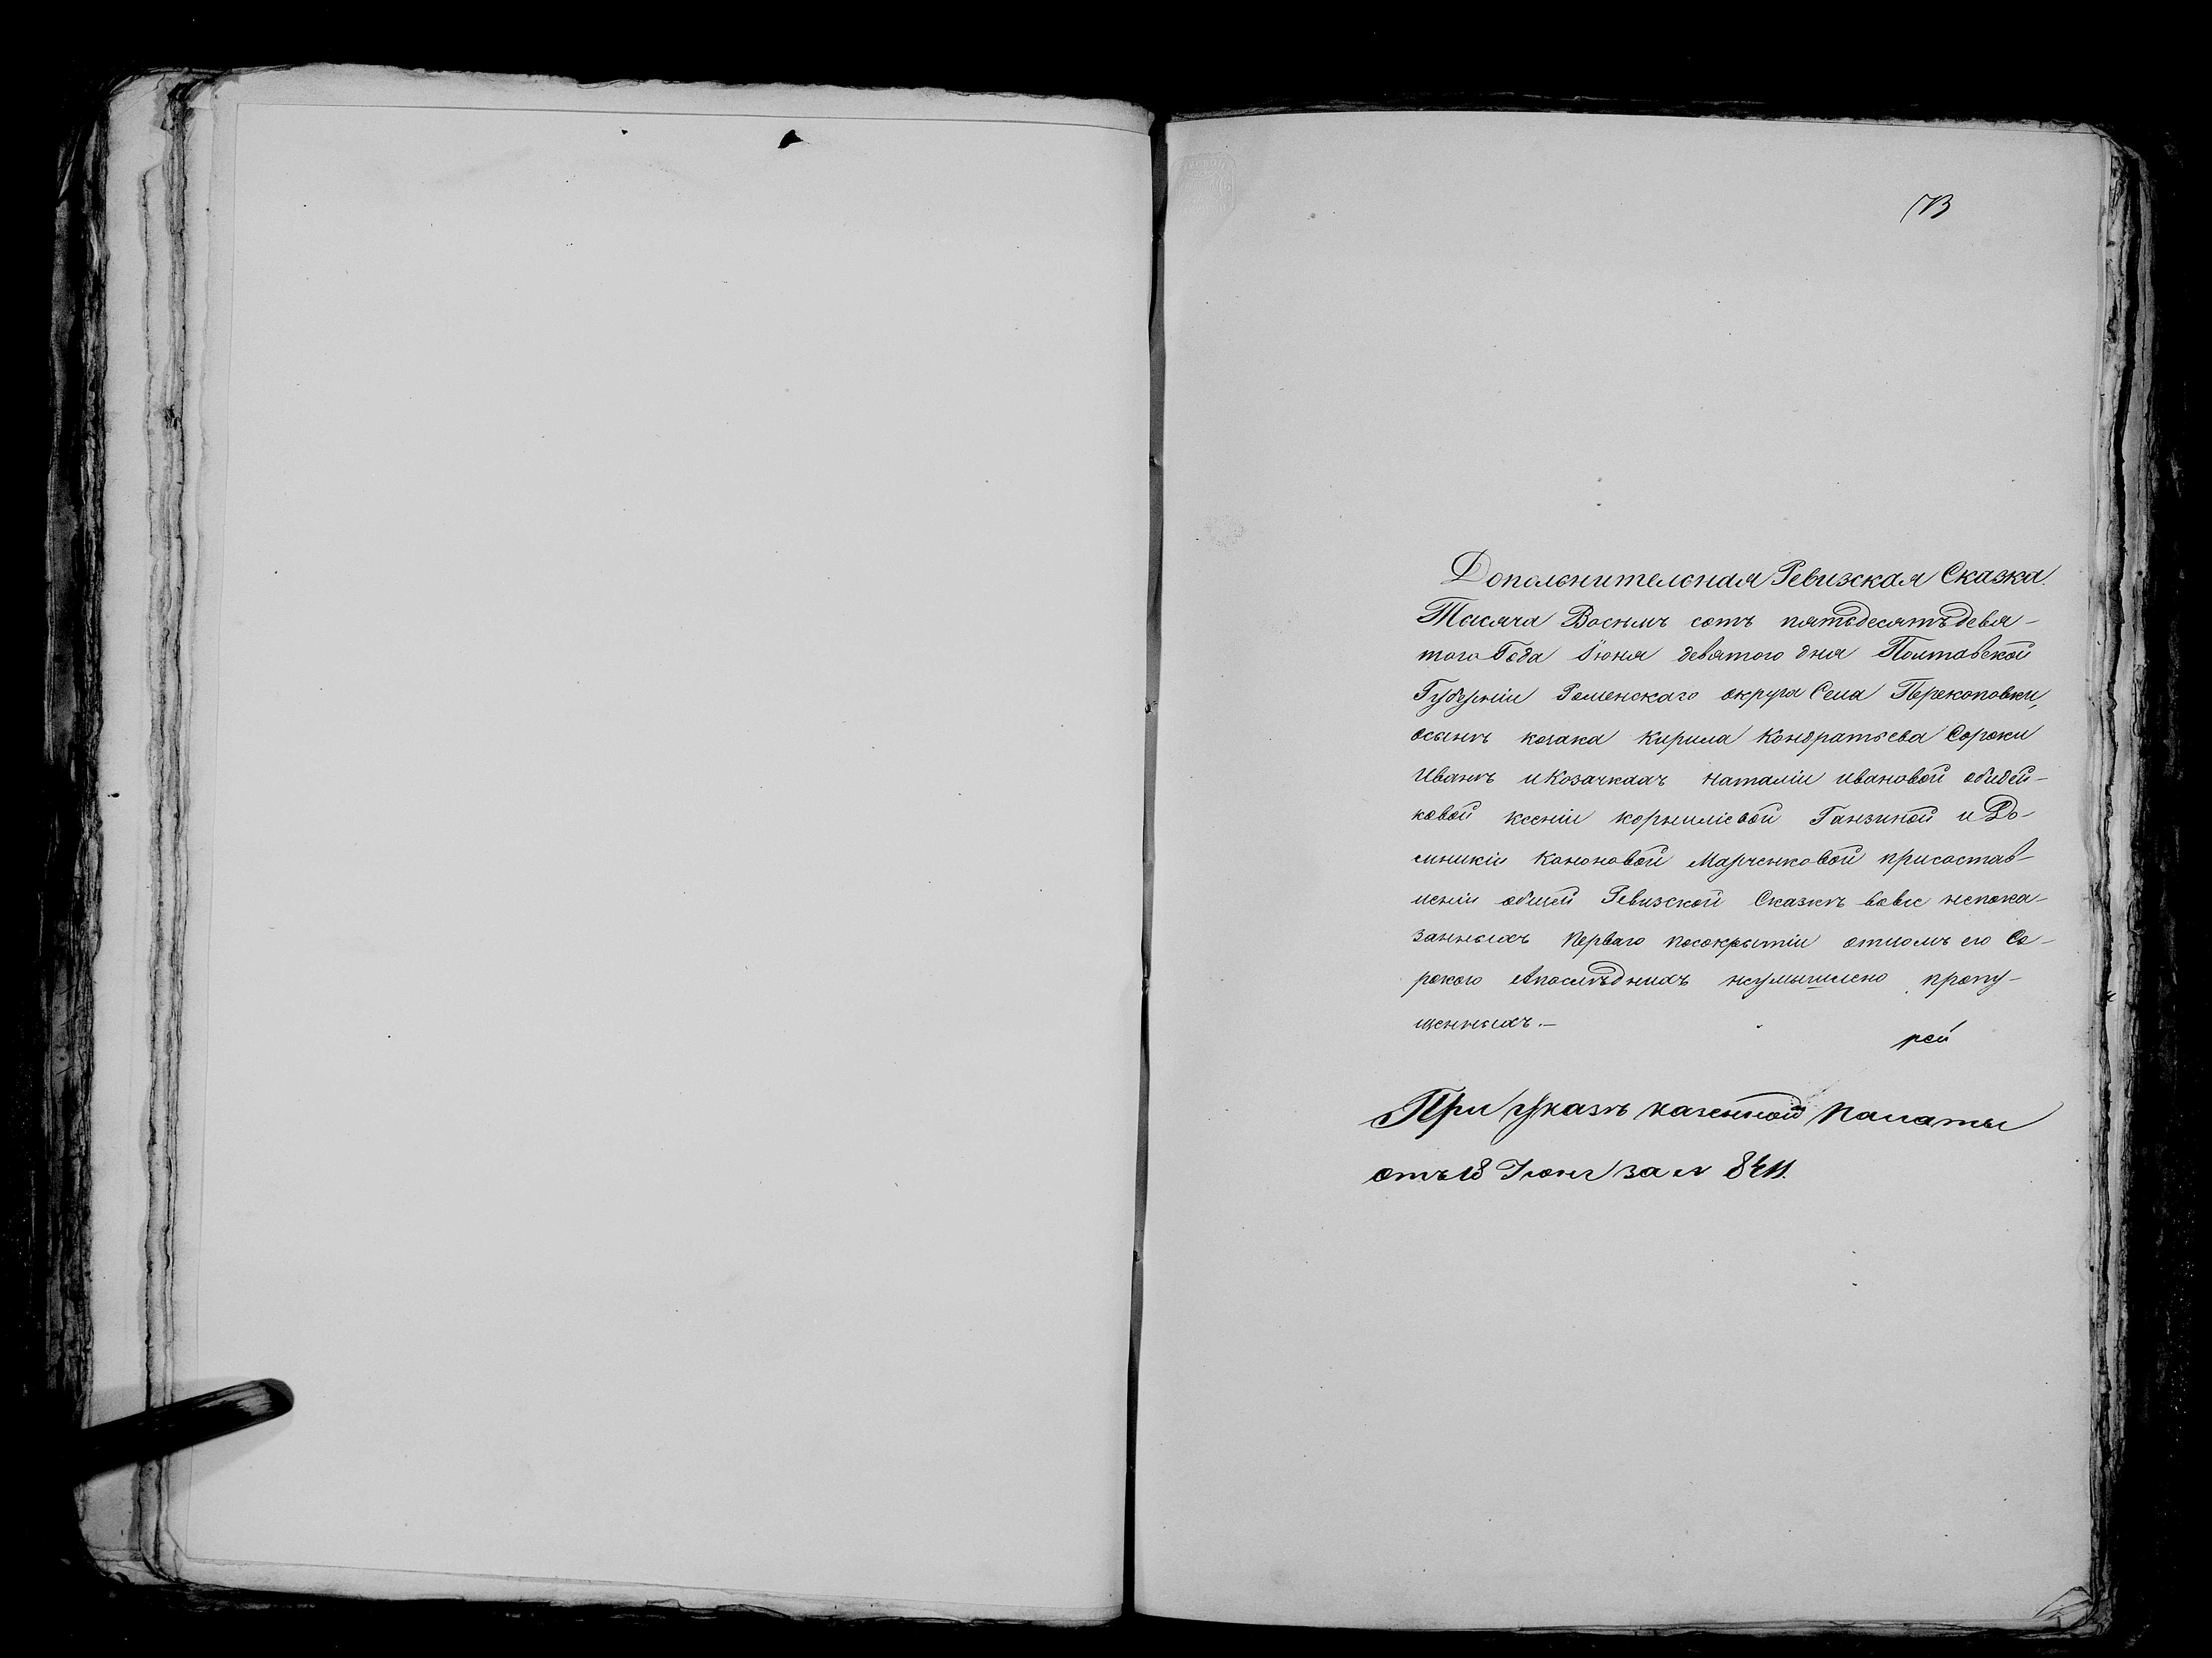 Дополнительная Ревизская Сказка.
Тысяча Восемь сотъ пятьдесятъ девя-
того Года Іюня девятого дня Полтавской
Губерніи Роменскаго округа Села Перекоповки,
осынѣ козака Кирила Кондратьева Сороки
Иванѣ и Козачкахъ Наталіи Ивановой
ковой Ксеніи Корниліевой Ганзиной и До-
миникіи Кононовой Марченковой присостав-
леніи общей Ревизской Сказкѣ вовсе непока-
занныхъ перваго посокрытіи отцомъ его Со-
рокою Апослѣднихъ неумышлено пропу-
щенныхъ.—
При Указѣ казенной палаты
отъ 18 Іюня за №